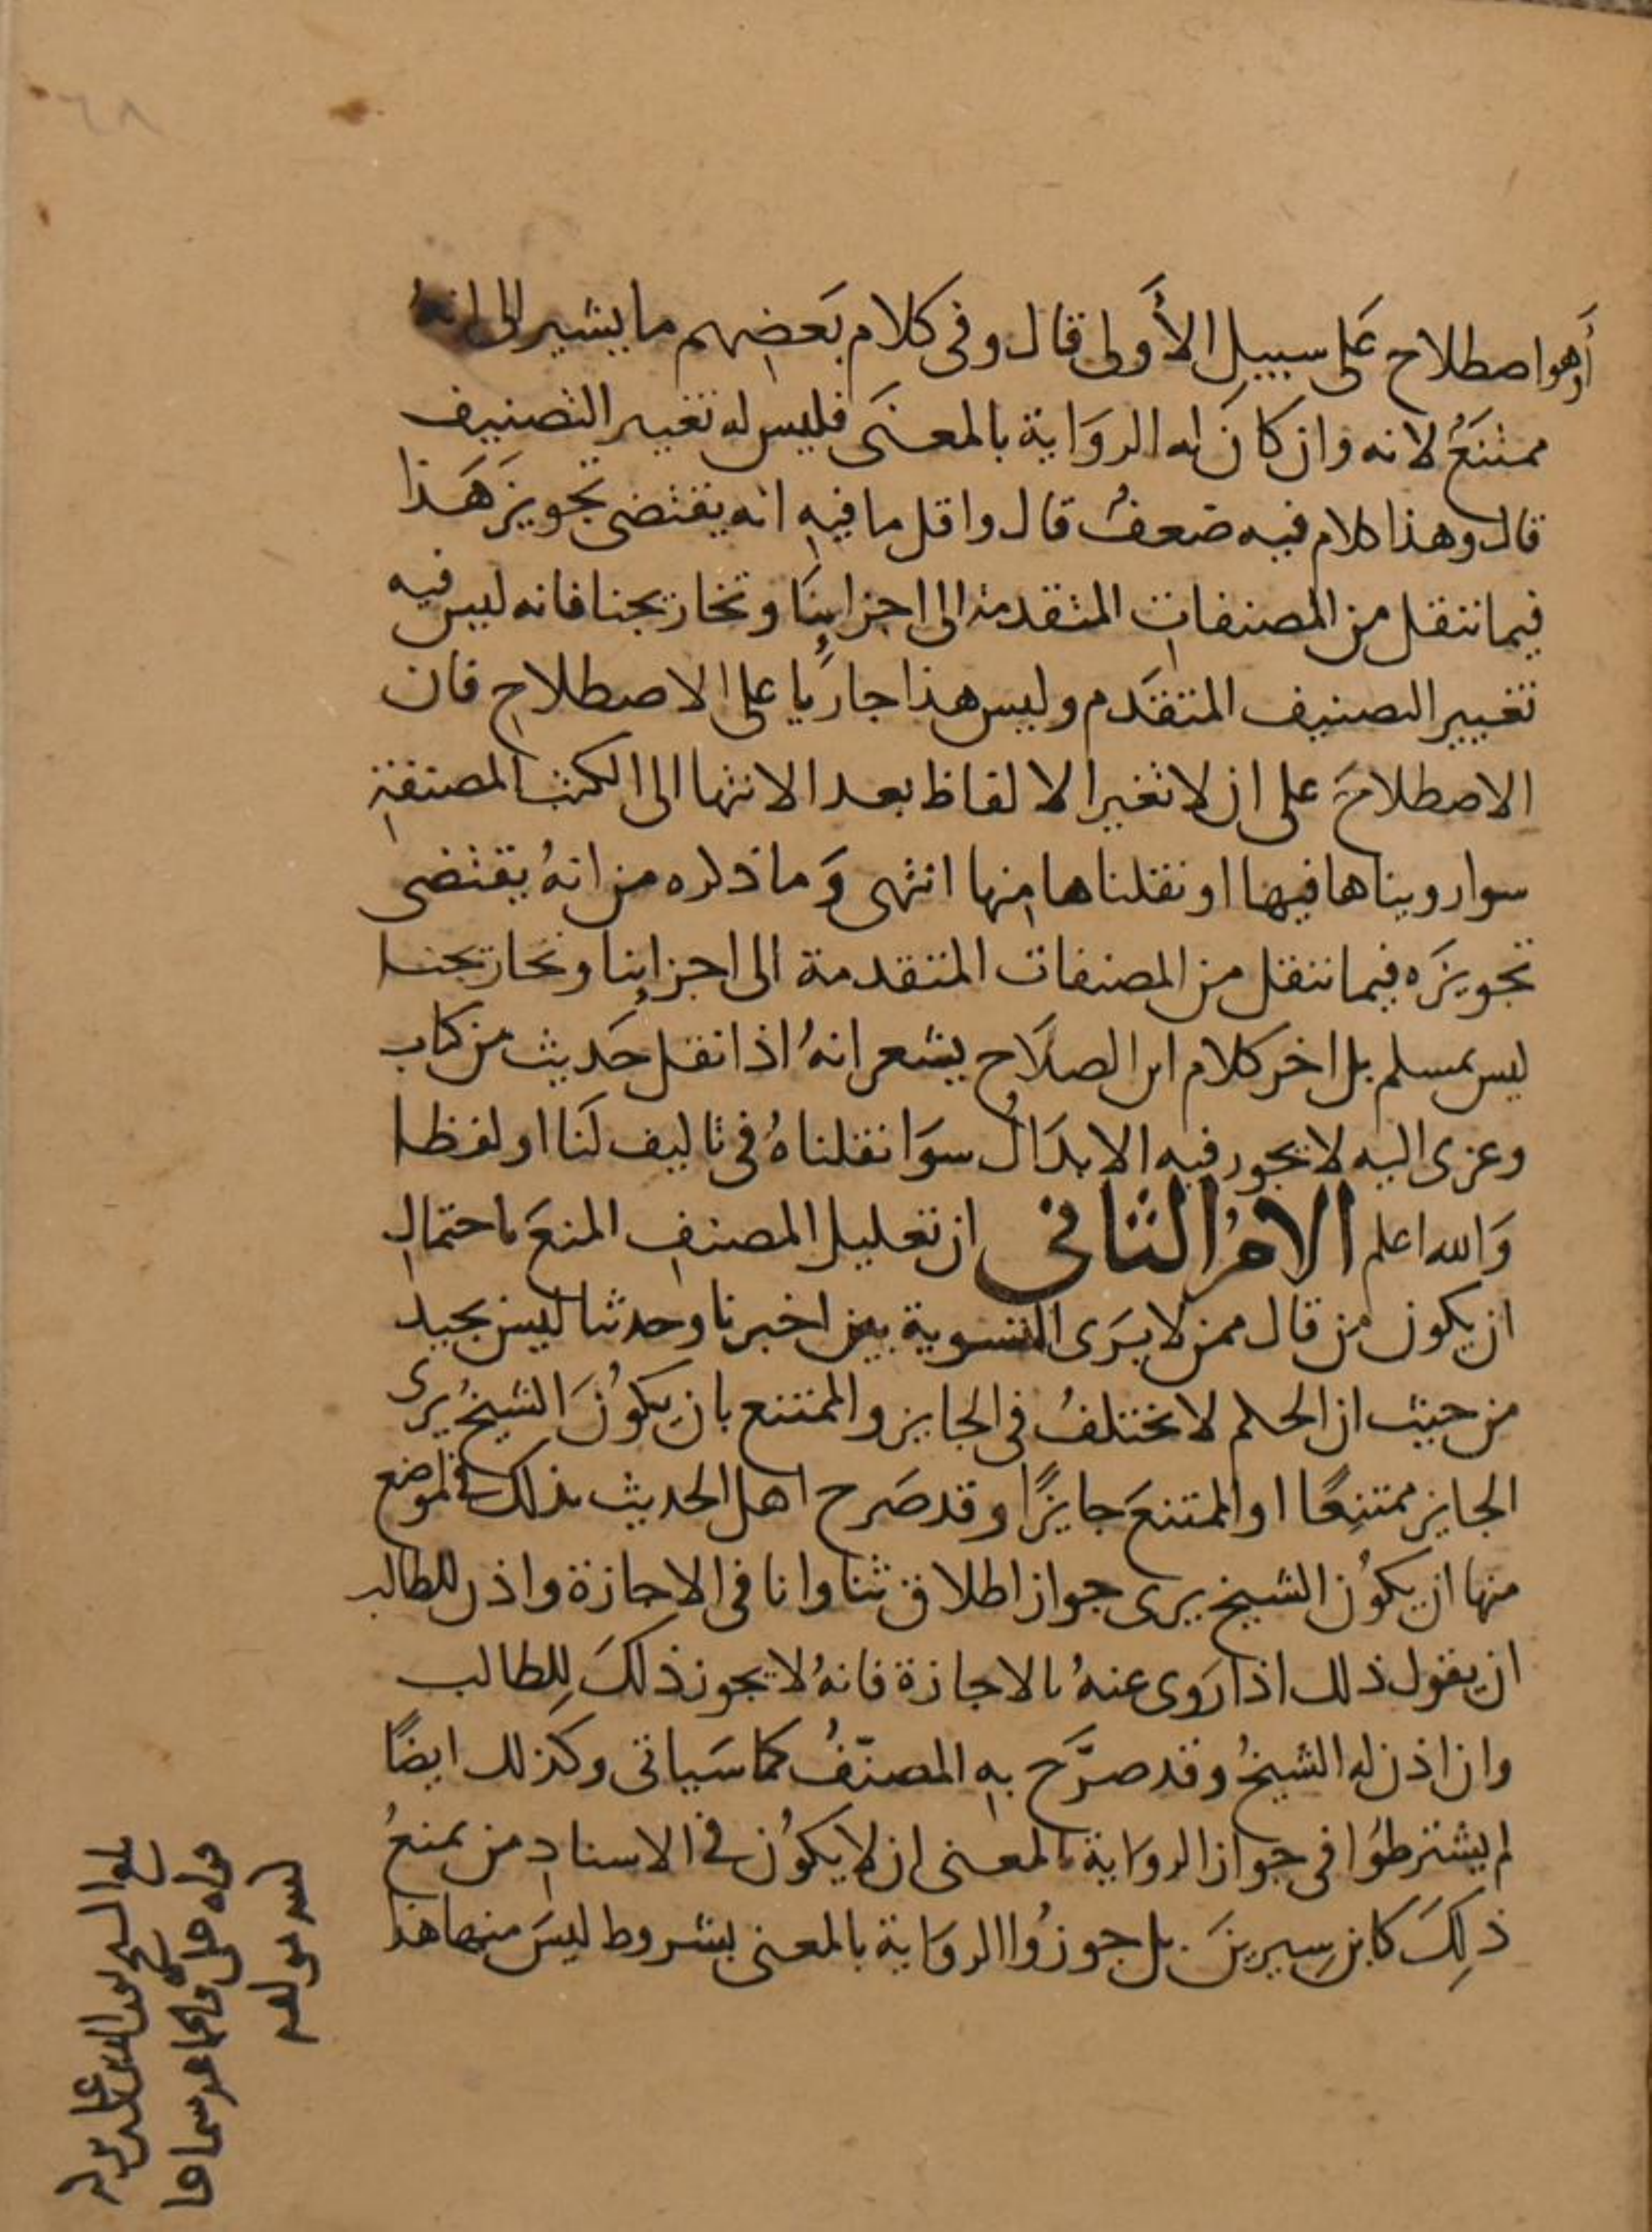 ٦٨
أوهو اصطلاح على سبيل الأولى قال وفى كلام بَعضهم ما يشير الى انهُ
ممتنعُ لانه وان كان له الروَاية بالمعنَى فليس له تغيير التصنيف
قال وهذا كلام فيه ضعفُ قال واقل ما فيه انه يقتضى تجويزَ هَذا
فيما ننقل من المصنفات المتقدمة الى اجزاينَا وتخاريجنا فانه ليس فيه
تغيير التصنيف المتقدَم وليس هذا جاريا على الاصطلاح فان
الاصطلاحَ على ان لا تغير الالفاظ بعد الانتها الى الكتب المصنفة
سوا رويناها فيها او نقلناها منها انتهى وَما ذكره من انهُ يقتضى
تجويزَه فيما ننقل من المصنفات المتقدمة الى اجزاينا وتخاريجنا
ليس بمسلم بل اخر كلام ابن الصلاَح يشعر انهُ اذا نقل حَديث من كتاب
وعزى اليه لا يجوز فيه الابدَالُ سوَا نقلناهُ فى تاليف لَنا او لفظا
وَالله اعلم الامرُ الثانى ان تعليل المصنفِ المنعَ باحتمالِ
ان يكون من قال ممن لا يرَى التسوية بين اخبرنا وحدثنا ليس بجيد
من حيث ان الحكم لا يختلفُ فى الجايز والممتنع بان يكونَ الشيخُ يرى
الجايز ممتنِعًا او الممتنعَ جايزًا وقد صَرح اهل الحديث بذلك فى مواضع
منها ان يكوُن الشيخ يرى جواز اطلاق ثنا وانا فى الاجازة واذن للطالب
ان يقول ذلك اذا رَوى عنهُ بالاجازة فانهُ لا يجوز ذلكَ لِلطالب
وان اذن له الشيخُ وقد صرَّح بهِ المصنّفُ كما سَياتى وكذلك ايضًا
لم يشترطوُا فى جواز الروَاية بالمعنى ان لا يكوُن فى الاسنادِ من يمنعُ
ذلِكَ كابن سِيرينَ بل جوزوُا الروَاية بالمعنى بشروط ليسَ منها هذا
بلغ الشيخ نور الدين
قراه على